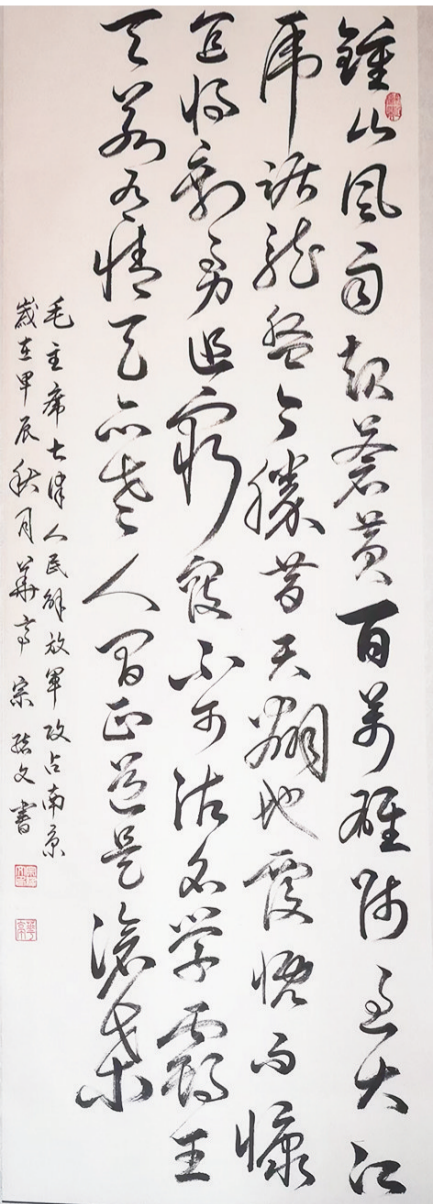 鍾山風雨起蒼黄百萬雄師過大江
虎踞龍盤今勝昔天翻地覆慨而慷
宜將剩勇追窮寇不可沽名學霸王
天若有情天亦老人間正道是滄桑
毛主席七律人民解放軍攻占南京
歲在甲辰秋月華亭宗文書